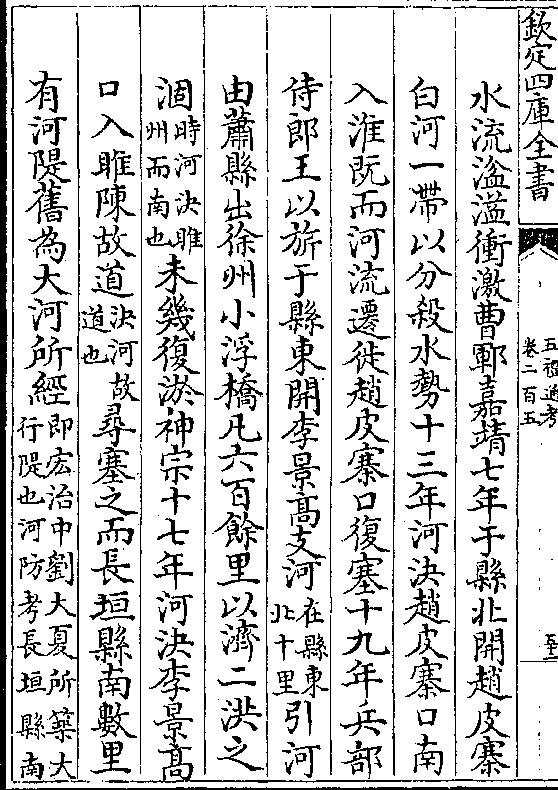 欽定四庫全書
五禮通考
卷二百五
水流湓溢衝激曹鄆嘉靖七年于縣北開趙皮寨
白河一帶以分殺水勢十三年河決趙皮寨口南
入淮既而河流遷徙趙皮寨口復塞十九年兵部
侍郎王以旂于縣東開李景高支河在縣東北十里引河
由蕭縣出徐州小浮橋凡六百餘里以濟二洪之
涸時河決睢州而南也未幾復淤神宗十七年河決李景高
口入睢陳故道決河故道也尋塞之而長垣縣南數里
有河隄舊為大河所經即宏治中劉大夏所築大行隄也河防考長垣縣南